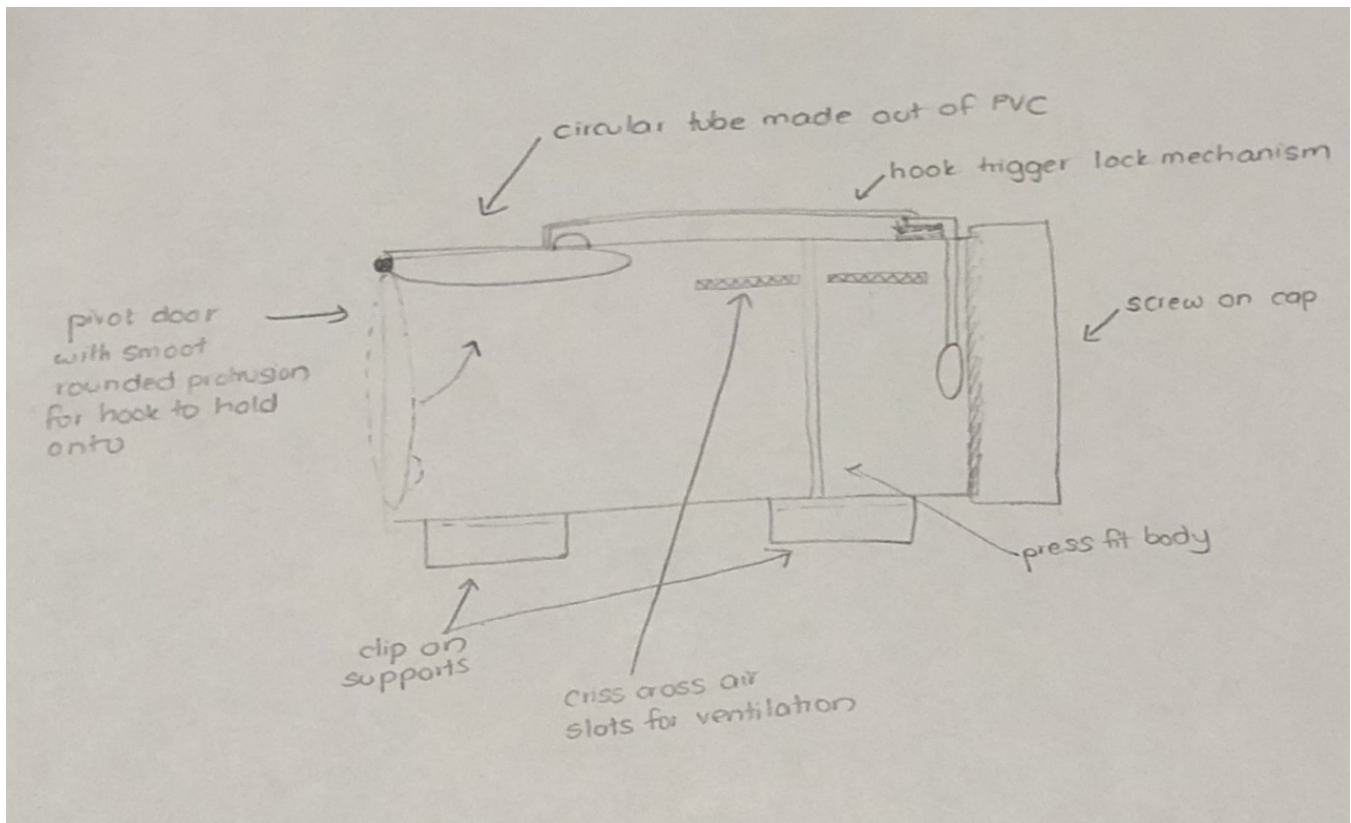 circular tube made out of PVC
hook trigger lock mechanism
pivot door
with smoot
rounded protrusion
for hook to hold
onto
screw on cap
press fit body
clip on
supports
criss cross air
slots for ventilation